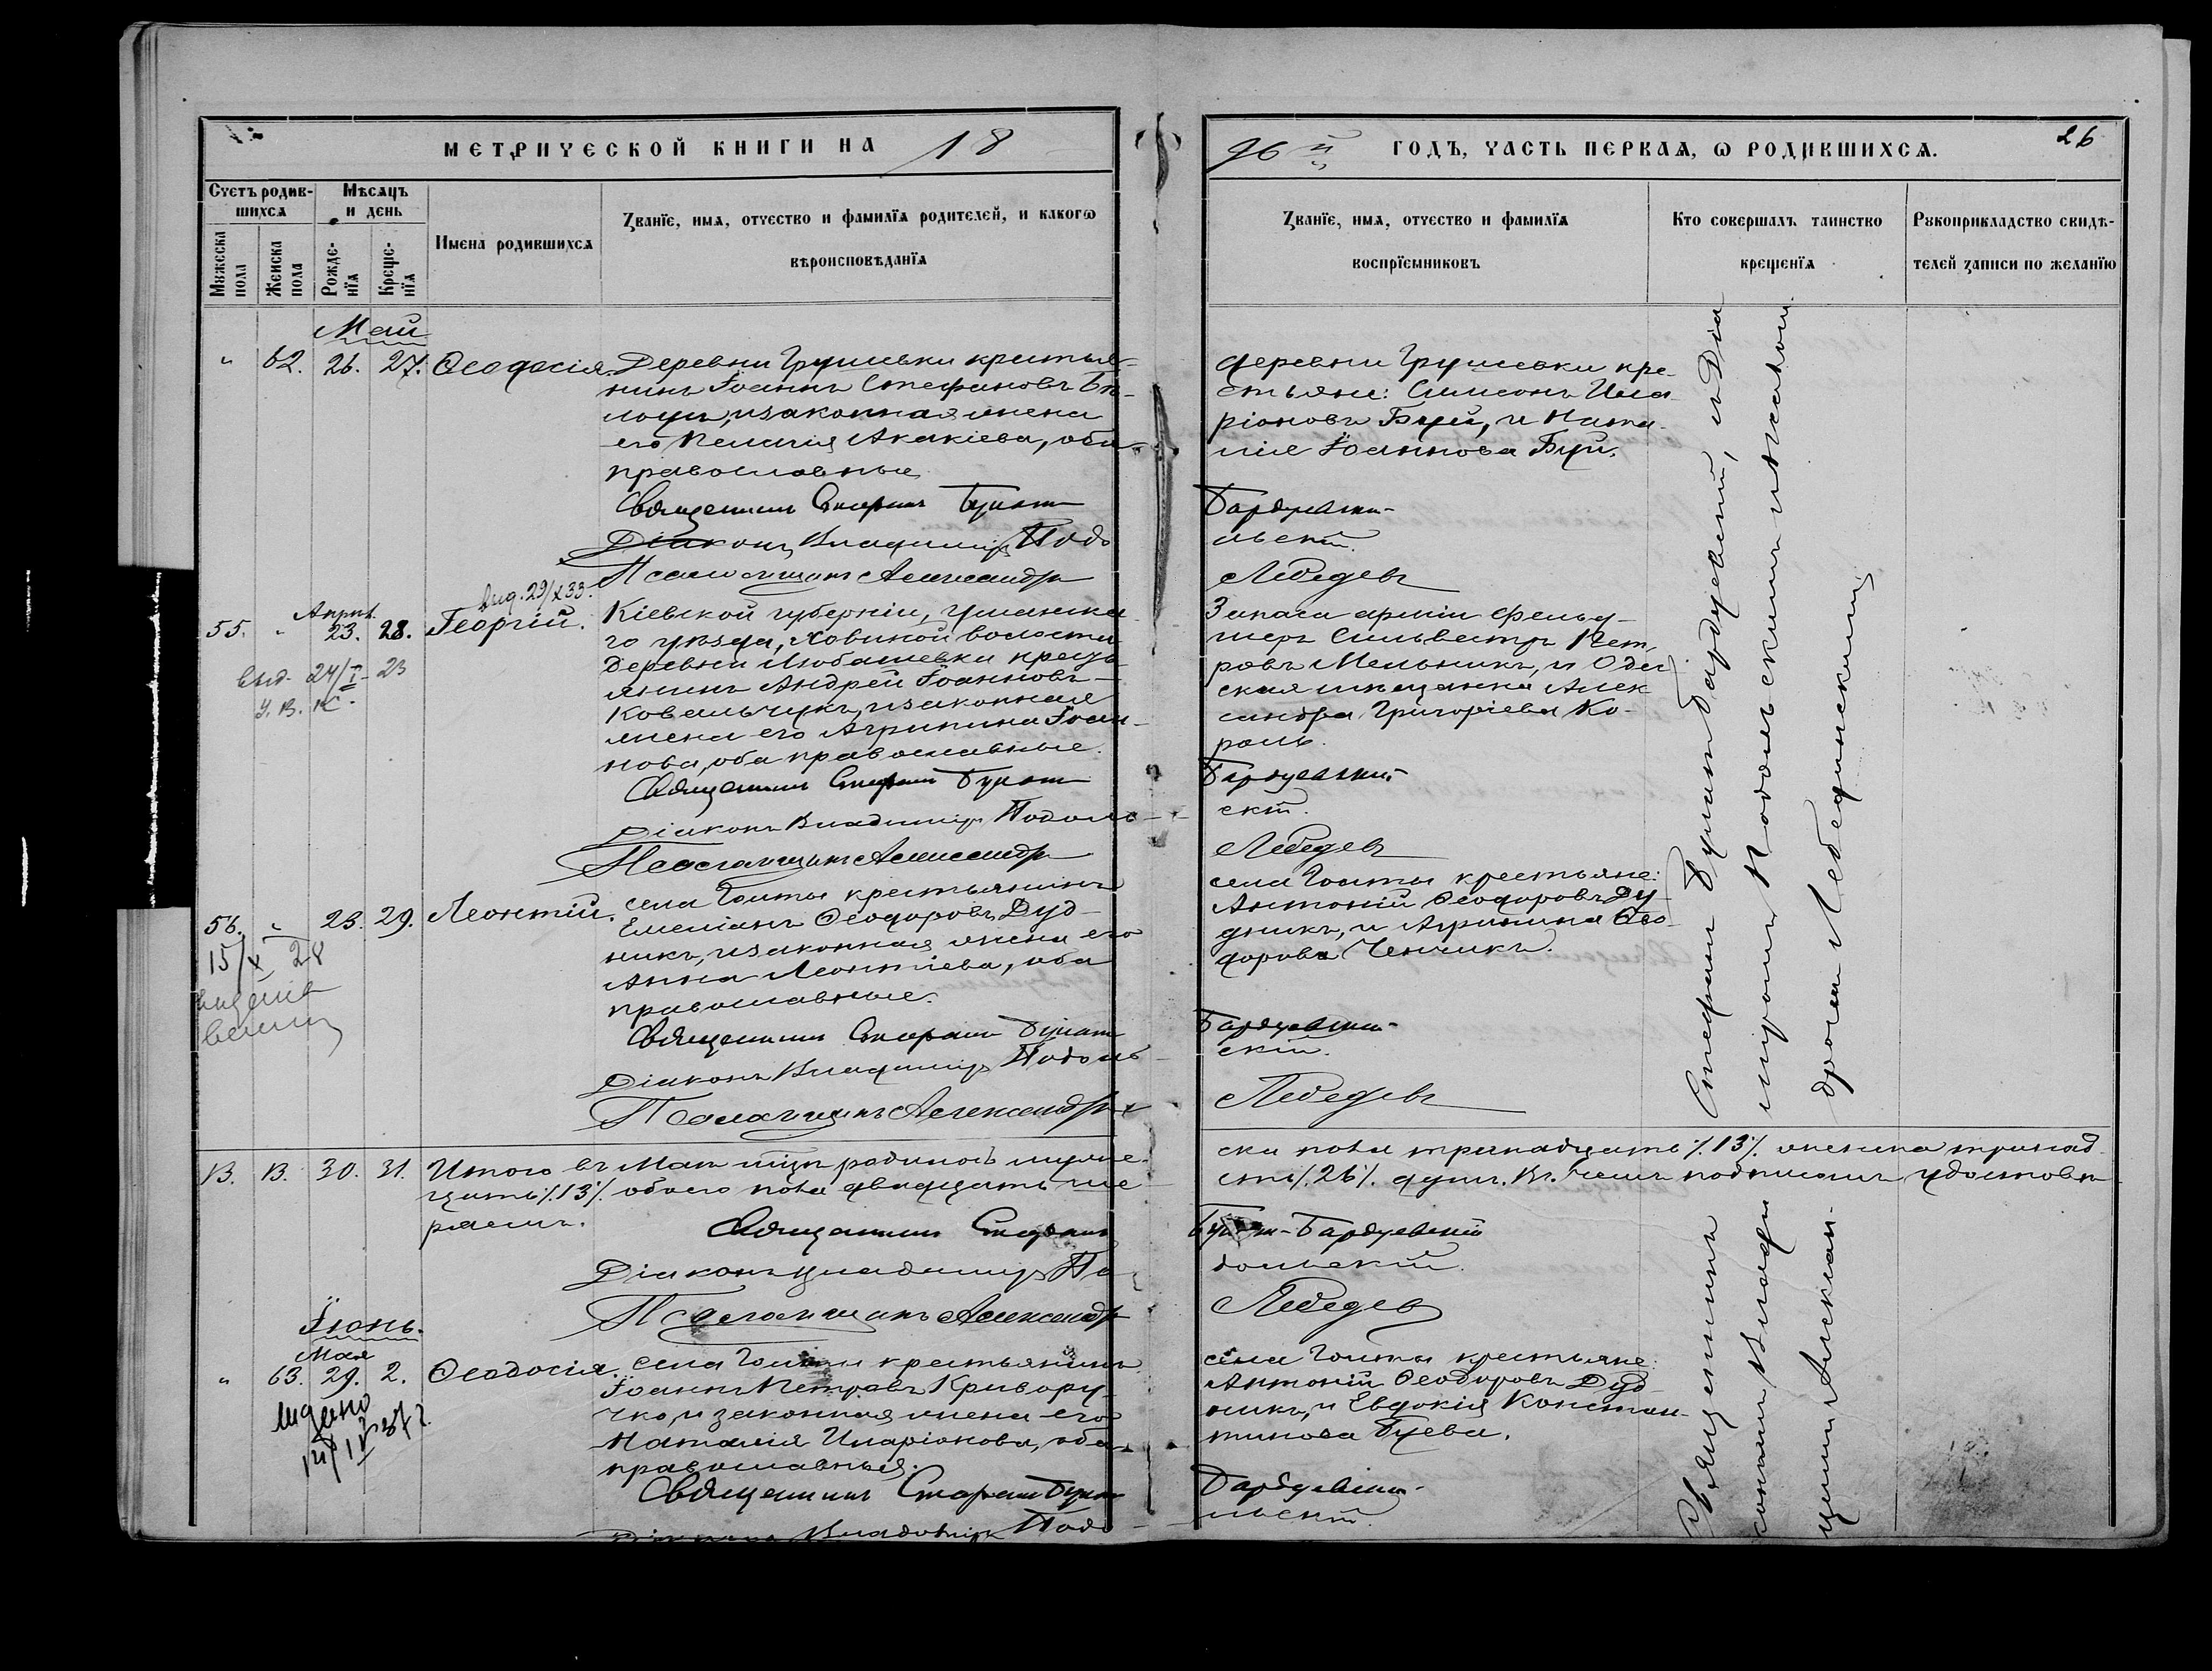 МЕТРИЧЕСКОЙ КНИГИ НА 18
96й ГОДЪ, ЧАСТЬ ПЕРВАѦ, Ѡ РОДИВШИХСѦ.
26
Счетъ родив-
шихсѧ
Мѣсѧцъ
и день
Мꙋжеска
пола
Женска
пола
Рожде-
нїѧ
Креще-
нїѧ
Имена родившихсѧ
Званїе, имѧ, отчество и фамилїѧ родителей, и какогѡ
вѣроисповѣданїѧ
Званїе, имѧ, отчество и фамилїѧ
воспрїемниковъ
Кто совершалъ таинство
крещенїѧ
Рꙋкоприкладство свидѣ-
телей записи по желанїю
Май
" 62. 26. 27. Ѳеодосія.
Деревни Грушевки крестья-
нинъ Іоаннъ Стефановъ Бѣ-
лоусъ, и законная жена
его Пелагія Акакіева, оба
православные
Священникъ Стефанъ Булат
Діаконъ Владимір Подо
Псаломщикъ Александр
деревни Грушевки кре-
стьяне: Симеонъ Ила-
ріоновъ Буй, и Ната-
лія Іоаннова Буй.
Бардуевскій
льскій.
Лебедев
55. " Апрѣл. 23. 28. Георгій.
Выд. 29/X 33.
Выд. 24/I - 23
Кіевской губерніи, Уманска-
го уѣзда, волости
деревни Любашевки кресть-
янинъ Андрей Іоанновъ
Ковальчукъ, и законная
жена его Агрипина Іоан-
нова, оба православные.
Священникъ Стефанъ Булат
Діаконъ Владимір Подоль
Псаломщикъ Александр
Запаса арміи фельд-
шеръ Сильвестръ Пет-
ровъ Мельникъ, и Одес
ская мѣщанка Алек
сандра Григоріева Ко-
роль.
Бардуевскій
скій.
Лебедев
56. " 23. 29. Леонтій.
15/X 28
села Голты крестьянинъ
Емеліанъ Ѳеодоровъ Дуд-
никъ, и законная жена его
Анна Леонтіева, оба
православные.
Священникъ Стефанъ Булат
Діаконъ Владимір Подоль
Псаломщикъ Александр
села Голты крестьяне:
Антоній Ѳеодоровъ Ду-
дникъ, и Агрипина Ѳео-
дорова Ченчикъ.
Бардуевскій
скій.
Лебедев
13. 13. 30. 31. Итого въ Маѣ мцѣ родилось муже-
ска пола тринадцать ٪13٪ женска тринад
цать ٪13٪ обоего пола двадцать ше
сть ٪26٪ душъ. Въ чемъ подписомъ удостовѣ
ряемъ.
Священникъ Стефанъ
Булат-Бардуевскій
Діаконъ Владимір По
дольскій.
Псаломщикъ Александр
Лебедев
Іюнь.
Мая
" 63. 29. 2. Ѳеодосія.
села Голты крестьянинъ
Іоаннъ Петровъ Кривору-
чко, и законная жена его
Наталія Иларіонова, оба
православные.
Священникъ Стефанъ Булат
Діаконъ Владимір Подо
села Голты крестьяне:
Антоній Ѳеодоровъ Дуд-
никъ, и Евдокія Констан-
тинова Буева.
Бардуевскій
льскій.
Священникъ Стефанъ Булат Бардуевскій, и Діа
кономъ Владиміромъ Подольскимъ и Псалом
щикомъ Александромъ Лебединскимъ